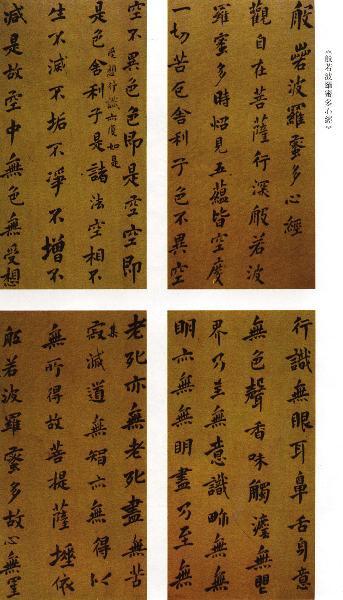 《般若波羅蜜多心經》
般若波羅蜜多心經
觀自在菩薩行深般若波
羅蜜多時照見五蘊皆空度
一切苦厄舍利子色不異空
空不異色色即是空空即
受想行識亦復如是
是色舍利子是諸法空相不
生不滅不垢不淨不增不
滅是故空中無色無受想
行識無眼耳鼻舌身意
無色聲香味觸法無眼
界乃至無意識界無無
明亦無無明盡乃至無
老死亦無老死盡無苦
集
寂滅道無智亦無得以
無所得故菩提薩埵依
般若波羅蜜多故心無罣